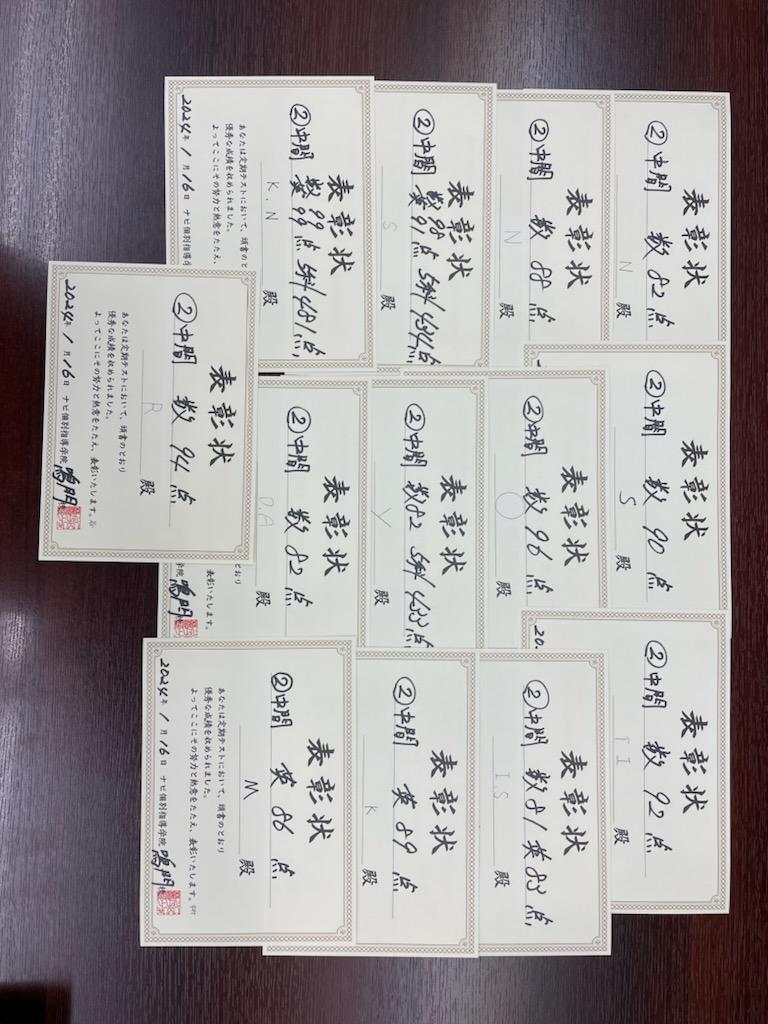 表彰状
②中間 数 82点
N 殿
表彰状
②中間 数 90点
S 殿
表彰状
②中間 数 92点
T I
20
表彰状
②中間 数 88点
N 殿
表彰状
②中間 数 96点
○ 殿
表彰状
②中間 数 81 英 83点
I.S 殿
表彰状
②中間 数98 英91点 5科/494点
S 殿
表彰状
②中間 数82 5科/433点
Y 殿
表彰状
②中間 英 89点
K 殿
表彰状
②中間 数99 英99点 5科/481点
K.N 殿
あなたは定期テストにおいて、頭書のと
優秀な成績を収められました。
よってここにその努力と熱意をたたえ、
2024年 1月 16日 ナビ個別指導
表彰状
②中間 数 82点
D.A 殿
とおり
表彰いたします。
学院 鳴門
表彰状
②中間 英 86点
M 殿
あなたは定期テストにおいて、頭書のとおり
優秀な成績を収められました。
よってここにその努力と熱意をたたえ、表彰いたします。
2024年 1月 16日 ナビ個別指導学院 鳴門校
表彰状
②中間 数 94点
R 殿
あなたは定期テストにおいて、頭書のとおり
優秀な成績を収められました。
よってここにその努力と熱意をたたえ、表彰いたします。
2024年 1月 16日 ナビ個別指導学院 鳴門